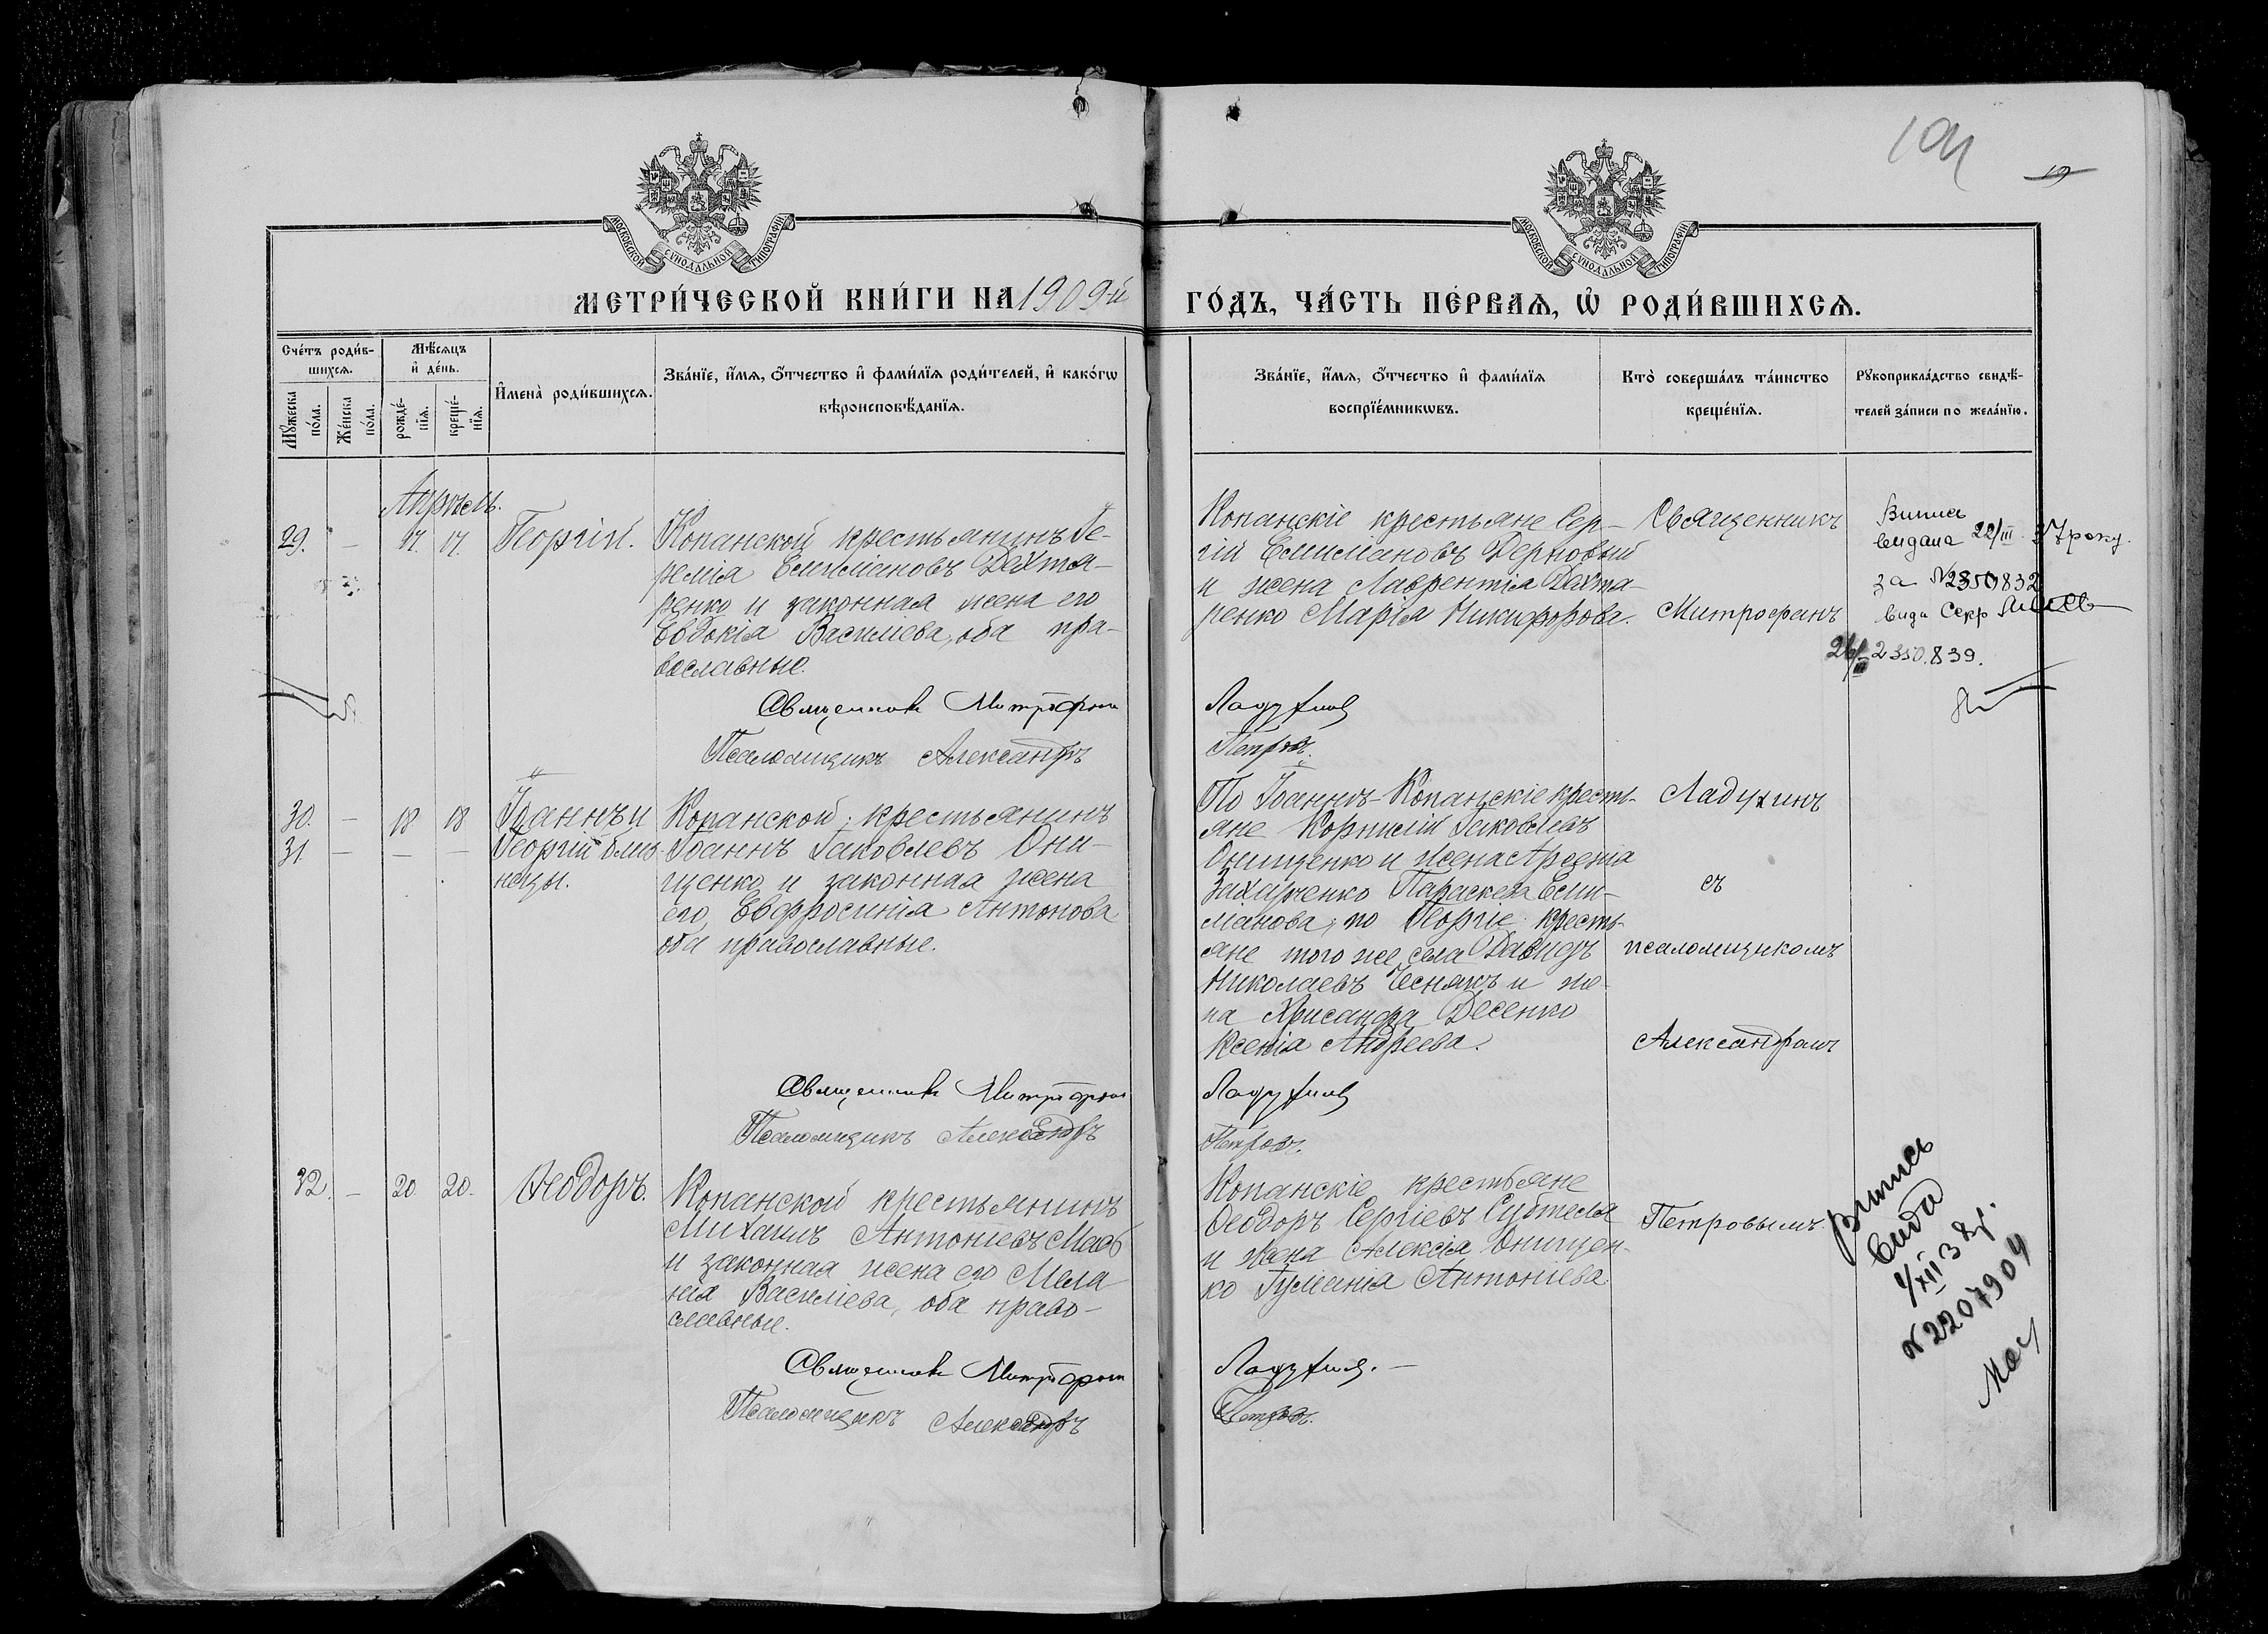 104
19
МОСКОВСКОЙ СѴНОДАЛЬНОЙ ТИПОГРАФІИ
МОСКОВСКОЙ СѴНОДАЛЬНОЙ ТИПОГРАФІИ
МЕТРИ́ЧЕСКОЙ КНИ́ГИ НА 1909-й
ГО́ДЪ, ЧА́СТЬ ПЕ́РВАЯ, Ѡ҆ РОДИ́ВШИХСѦ.
Сче́тъ роди́в-
шихсѧ.
Мꙋ́жеска по́ла.
Же́нска по́ла.
Мѣ́сѧцъ
и҆ де́нь.
рожде́-
нїѧ.
креще́-
нїѧ.
И҆мена̀ роди́вшихсѧ.
Зва́нїе, и҆́мѧ, ѻ҆́тчество и҆ фами́лїѧ роди́телей, и҆ како́гѡ
вѣроисповѣ́данїѧ.
Зва́нїе, и҆́мѧ, ѻ҆́тчество и҆ фами́лїѧ
воспрїе́мникѡвъ.
Кто̀ соверша́лъ та́инство
креще́нїѧ.
Рꙋкоприкла́дство свидѣ́-
телей за́писи по жела́нїю.
Апрѣль.
29. — 17. 17. Георгій.
Копанской крестьянинъ Іе-
ремія Емиліановъ Дахта-
ренко и законная жена его
Евдокія Василіева, оба пра-
вославные.
Священникъ Митрофанъ
Псаломщикъ Александръ
Копанскіе крестьяне Сер-
гій Емиліановъ Дерновый
и жена Лаврентія Дахта-
ренко Марія Никифорова.
Ладухинъ
Петровъ.
Священникъ
Митрофанъ
Випись
видана 22/III 37 року.
за №2350832
вида Секр
26/III 2350.839.
30. — 18 18 Іоаннъ и
31 — — — Георгій близ-
нецы.
Копанской крестьянинъ
Іоаннъ Іаковлевъ Они-
щенко и законная жена
его, Евфросинія Антонова
оба православные.
Священникъ Митрофанъ
Псаломщикъ Александръ
По Іоаннѣ-Копанскіе кресть-
яне Корнилій Іаковлевъ
Онищенко и жена Арсенія
Захарченко Параскева Еми-
ліанова; по Георгіе: кресть-
яне того же села Давидъ
Николаевъ Чеснакъ и же-
на Хрисанфа Десенко
Ксенія Андреева.
Ладухинъ
Петровъ.
Ладухинъ
съ
псаломщикомъ
Александромъ
32. — 20 20. Ѳеодоръ.
Копанской крестьянинъ
Михаилъ Антоніевъ
и законная жена его Мела
нія Василіева, оба право-
славные.
Священникъ Митрофанъ
Псаломщикъ Александръ
Копанскіе крестьяне
Ѳеодоръ Сергіевъ Субтеля
и жена Алексія Онищен-
ко Іуліанія Антоніева.
Ладухинъ. —
Петровъ.
Петровымъ
Випись
вида
/XII 3
№2207904